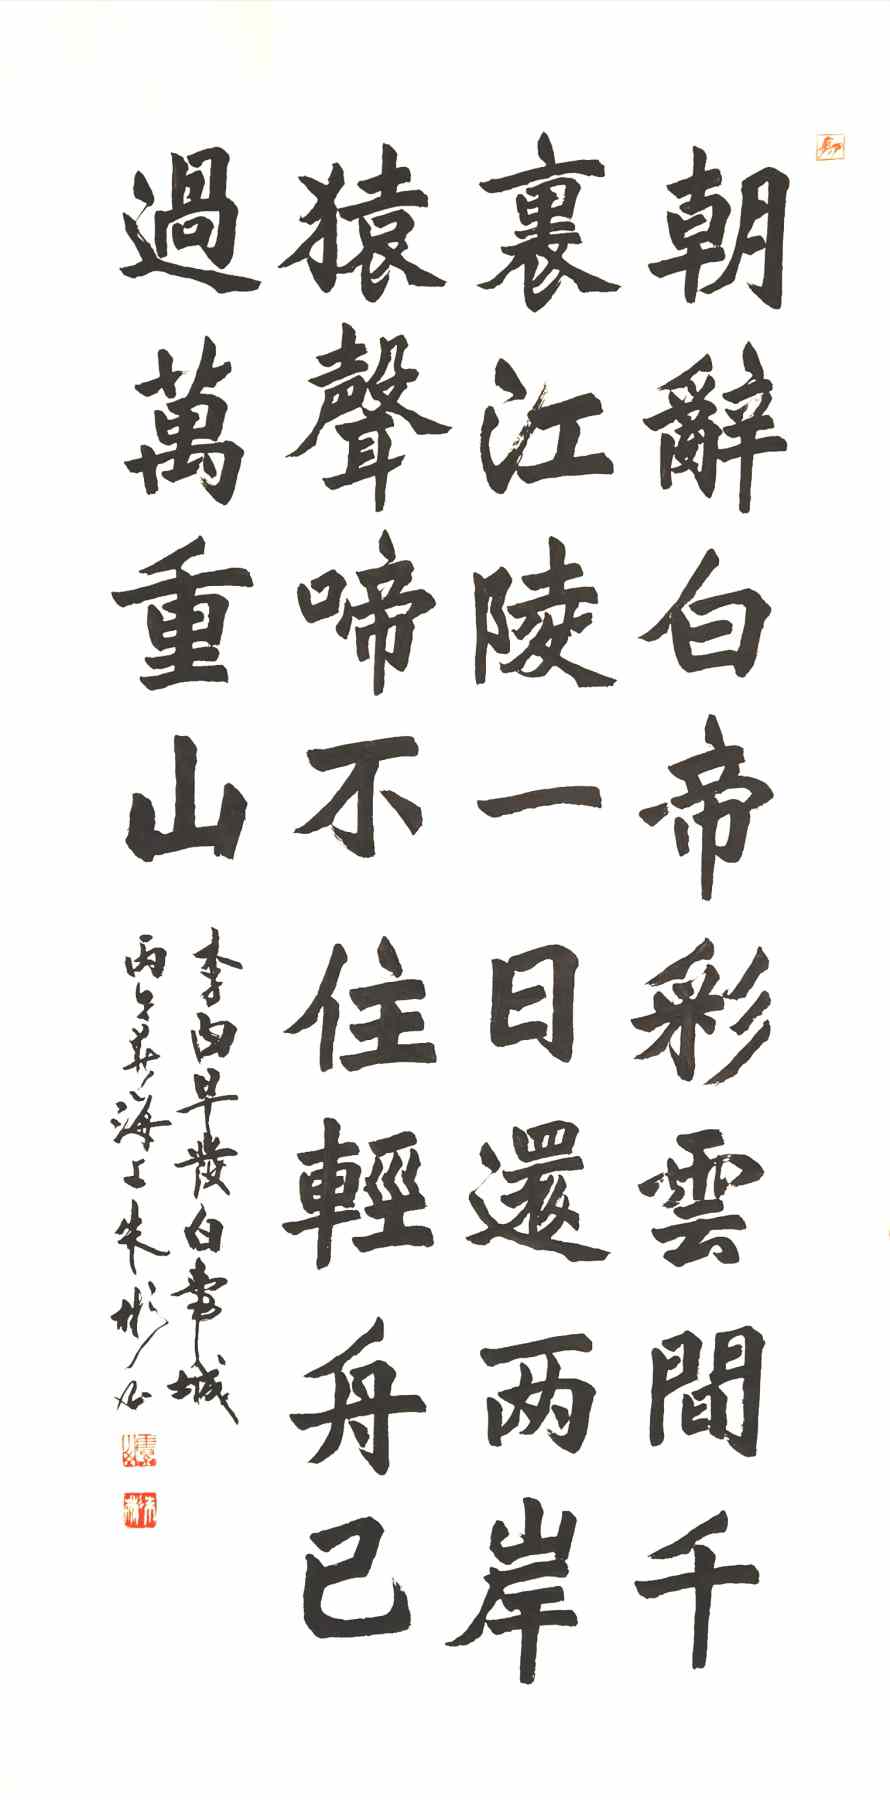 朝辭白帝彩雲間千
裏江陵一日還两岸
猿聲啼不住輕舟已
過萬重山
李白早發白帝城
丙午募海上朱彬書